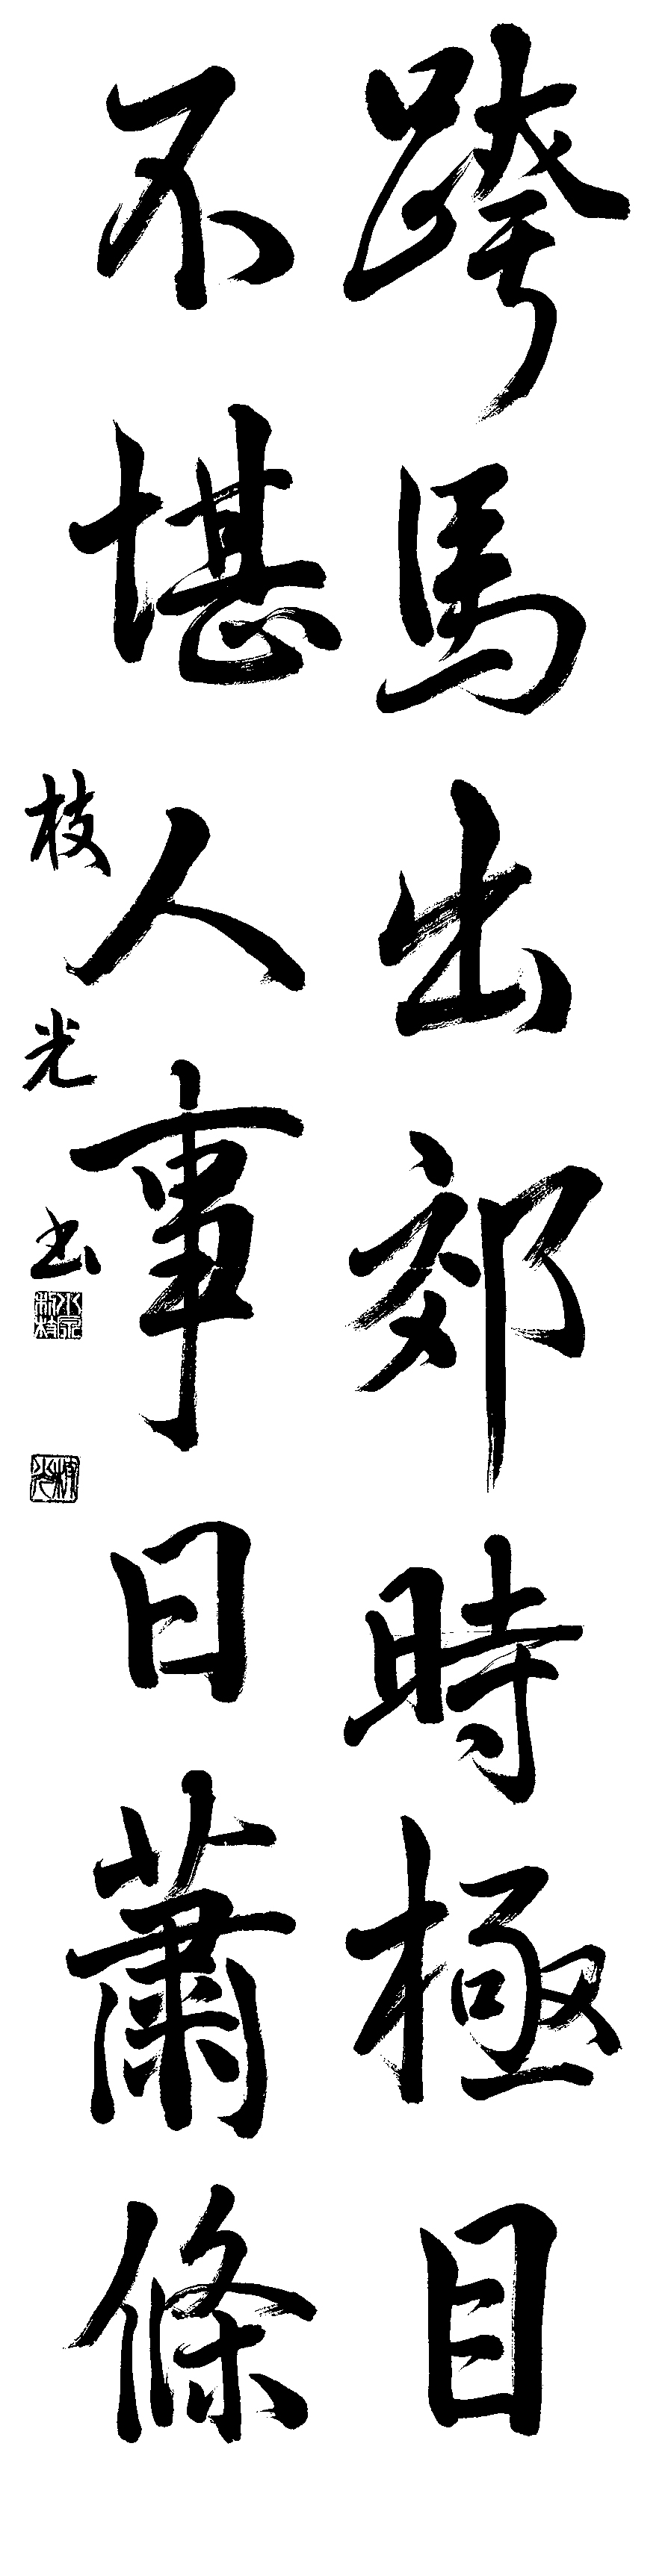 跨馬出郊時極目
不堪人事日蕭條
枝光書